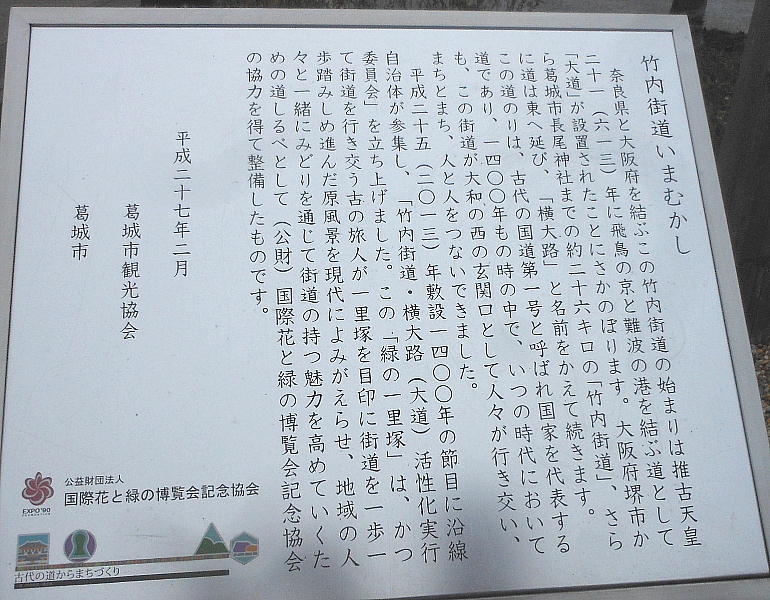 竹内街道いまむかし
奈良県と大阪府を結ぶこの竹内街道の始まりは推古天皇
二十一（六一三）年に飛鳥の京と難波の港を結ぶ道として
「大道」が設置されたことにさかのぼります。大阪府堺市か
ら葛城市長尾神社までの約二十六キロの「竹内街道」、さら
に道は東へ延び、「横大路」と名前をかえて続きます。
この道のりは、古代の国道第一号と呼ばれ国家を代表する
道であり、一四〇〇年もの時の中で、いつの時代において
も、この街道が大和の西の玄関口として人々が行き交い、
まちとまち、人と人をつないできました。
平成二十五（二〇一三）年敷設一四〇〇年の節目に沿線
自治体が参集し、「竹内街道・横大路（大道）活性化実行
委員会」を立ち上げました。この「緑の一里塚」は、かつ
て街道を行き交う古の旅人が一里塚を目印に街道を一歩一
歩踏みしめ進んだ原風景を現代によみがえらせ、地域の人
々と一緒にみどりを通じて街道の持つ魅力を高めていくた
めの道しるべとして（公財）国際花と緑の博覧会記念協会
の協力を得て整備したものです。
平成二十七年二月
葛城市観光協会
葛城市
EXPO'90
FOUNDATION
公益財団法人
国際花と緑の博覧会記念協会
古代の道からまちづくり